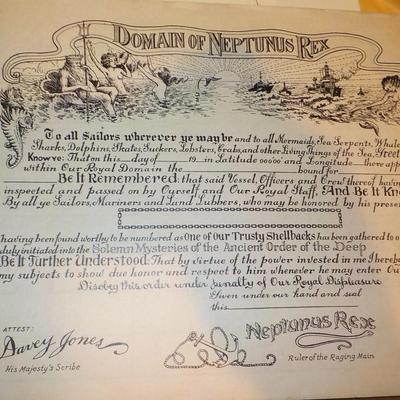 DOMAIN OF NEPTUNUS REX
To all Sailors wherever ye may be and to all Mermaids, Sea Serpents, Whale
Sharks, Dolphins, Skates, Suckers, Lobsters, Crabs, and other Living Things of the Sea, Greet
Know ye: That on this ___ day of ___ 19__ in Latitude 00000' and Longitude ___ there app
within Our Royal Domain the ___ bound for ___
Be It Remembered: that said Vessel, Officers and Crew thereof having
inspected and passed on by Ourself and Our Royal Staff, And Be It Kno
By all ye Sailors, Mariners and Land Lubbers, who may be honored by his presen
having been found worthy to be numbered as One of our Trusty Shellbacks has been gathered to o
duly initiated into the Solemn Mysteries of the Ancient Order of the Deep
Be It Further Understood: That by virtue of the power invested in me I hereb
my subjects to show due honor and respect to him whenever he may enter Our
Disobey this order under penalty of Our Royal Displeasure
Given under our hand and seal
this ___
ATTEST:
Davey Jones
His Majesty's Scribe
Neptunus Rex
Ruler of the Raging Main